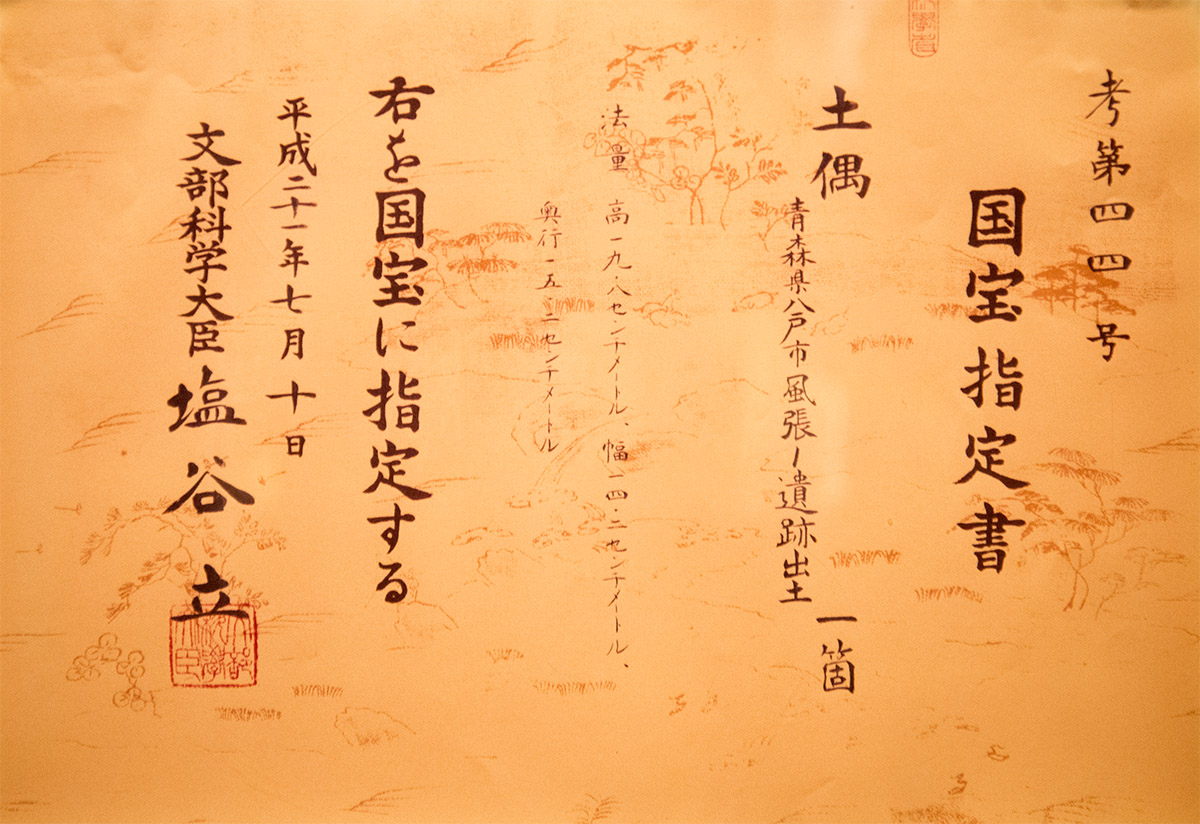 考第四四号
国宝指定書
土偶 一箇
青森県八戸市風張1遺跡出土
法量 高一九・八センチメートル、幅一四・二センチメートル、
奥行一五・二センチメートル
右を国宝に指定する
平成二十一年七月十日
文部科学大臣 塩谷立